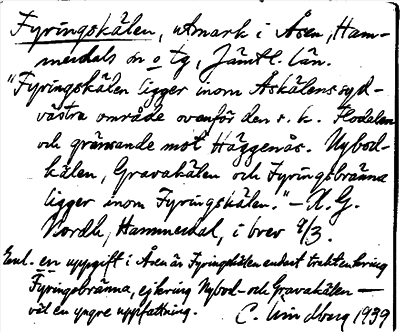 Fyringskälen, utmark i Åsen, Ham-
merdals sn o tg, Jämtl. län.
"Fyringskälen ligger inom Askälens syd-
västra område ovanför den s. k. Flodalen
och gränsande mot Häggenås. Nybod-
kälen, Gravakälen och Fyringsbränna
ligger inom Fyringskälen." — K. G.
Nordh, Hammerdal, i brev 9/3.
Enl. en uppgift i Åsen är Fyringskälen endast trakten kring
Fyringsbränna, ej kring Nybod- och Gravakälen —
väl en yngre uppfattning. C. Lindberg 1939